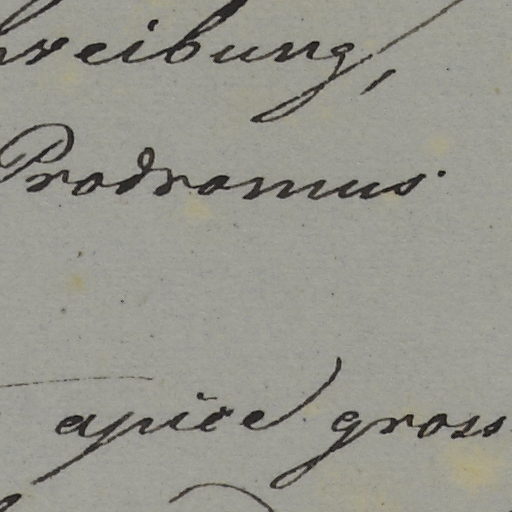 hreibung,
Prodromus.
apice gross